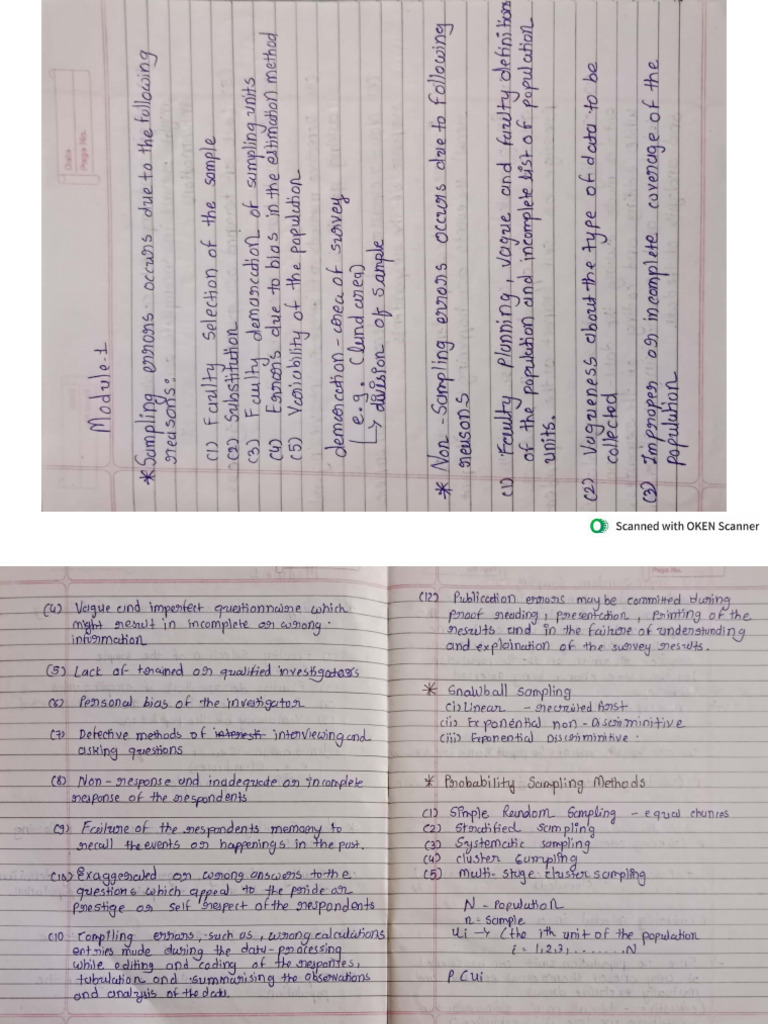 Date
Page No.
Module-1
* Sampling errors occurs due to the following
reasons:
(1) Faulty selection of the sample
(2) Substitution
(3) Faulty demarcation of sampling units
(4) Errors due to bias in the estimation method
(5) Variability of the population
demarcation - area of survey
(e.g. (land area)
↳ division of sample
* Non-Sampling errors occurs due to following
reasons
(1) Faulty Planning, Vague and faulty definition
of the population and incomplete list of population
units.
(2) Vagueness about the type of data to be
collected
(3) Improper or incomplete coverage of the
population
Scanned with OKEN Scanner
(4) Vague and imperfect questionnaire which
might result in incomplete or wrong
information
(5) Lack of trained or qualified investigators
(6) Personal bias of the investigator
(7) Defective methods of interviewing and
asking questions
(8) Non-response and inadequate or incomplete
response of the respondents
(9) Failure of the respondents memory to
recall the events or happenings in the past.
(10) Exaggerated or wrong answers to the
questions which appeal to the pride or
prestige or self respect of the respondents
(11) Compiling errors, such as, wrong calculations
entries made during the data-processing
while editing and coding of the responses,
tabulation and summarising the observations
and analysis of the data.
(12) Publication errors may be committed during
proof reading, presentation, printing of the
results and in the failure of understanding
and explaination of the survey results.
* Snowball sampling
(i) Linear - recruited first
(ii) Exponential non-Discriminitive
(iii) Exponential Discriminitive.
* Probability Sampling Methods
(1) Simple Random Sampling - equal chances
(2) Stratified sampling
(3) Systematic sampling
(4) cluster sampling
(5) multi-stage cluster sampling
N - Population
n - sample
ui → (the ith unit of the population
i = 1,2,3,.......N
P(ui